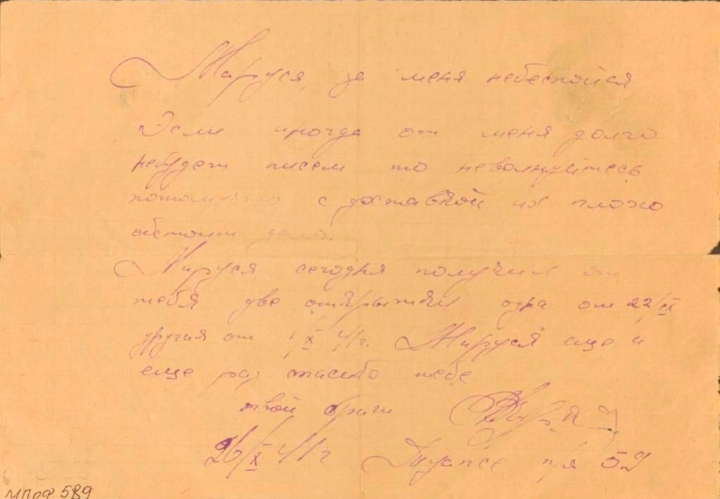 Маруся, за меня небеспойся
Если иногда от меня долго
небудет писем то неволнуйтесь
потому что с доставкой их плохо
обстоит дело.
Маруся сегодня получил от
тебя две открытки одна от 22/IX
другая от 1/X 41г. Маруся еще и
еще раз спасибо тебе
твой
26/X 41г Туапсе п/я 52
МПОФ 589